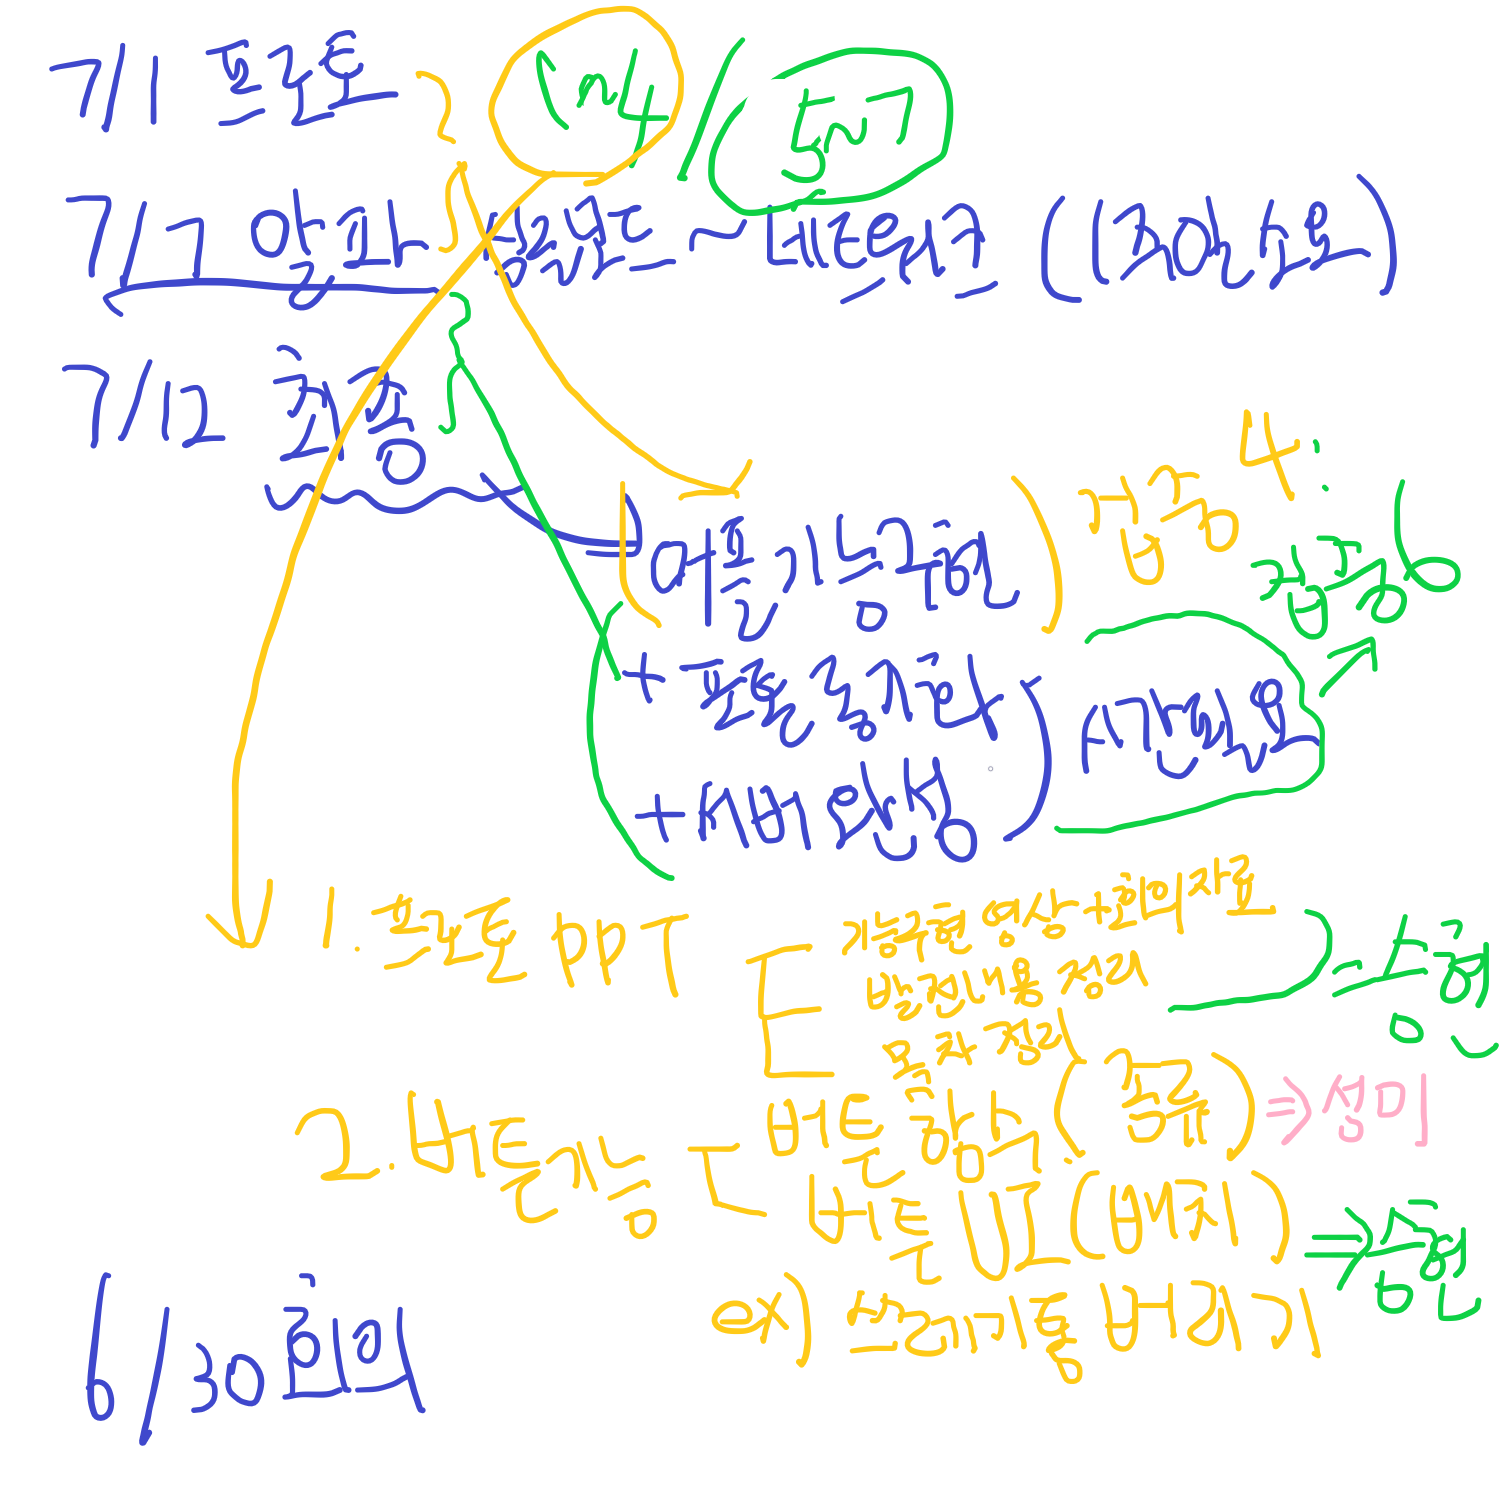 7/1 프로토
1~4 / 5~7
7/7 알파 빌보드 ~ 네트워크 (1주일 소요)
7/12 최종
어플 기능 구현
검증 4:
검증 6
+ 포톤 룸 지원
시간 필요
+ 서버 완성
1. 프로토 PPT
기능구현 영상 + 회의 자료
발전내용 정리
목차 정리
= 승현
2. 버튼 기능
버튼 함수 (종류) ⇒ 성미
버튼 UI (배치) ⇒ 승현
ex) 쓰레기통 버리기
6/30 회의